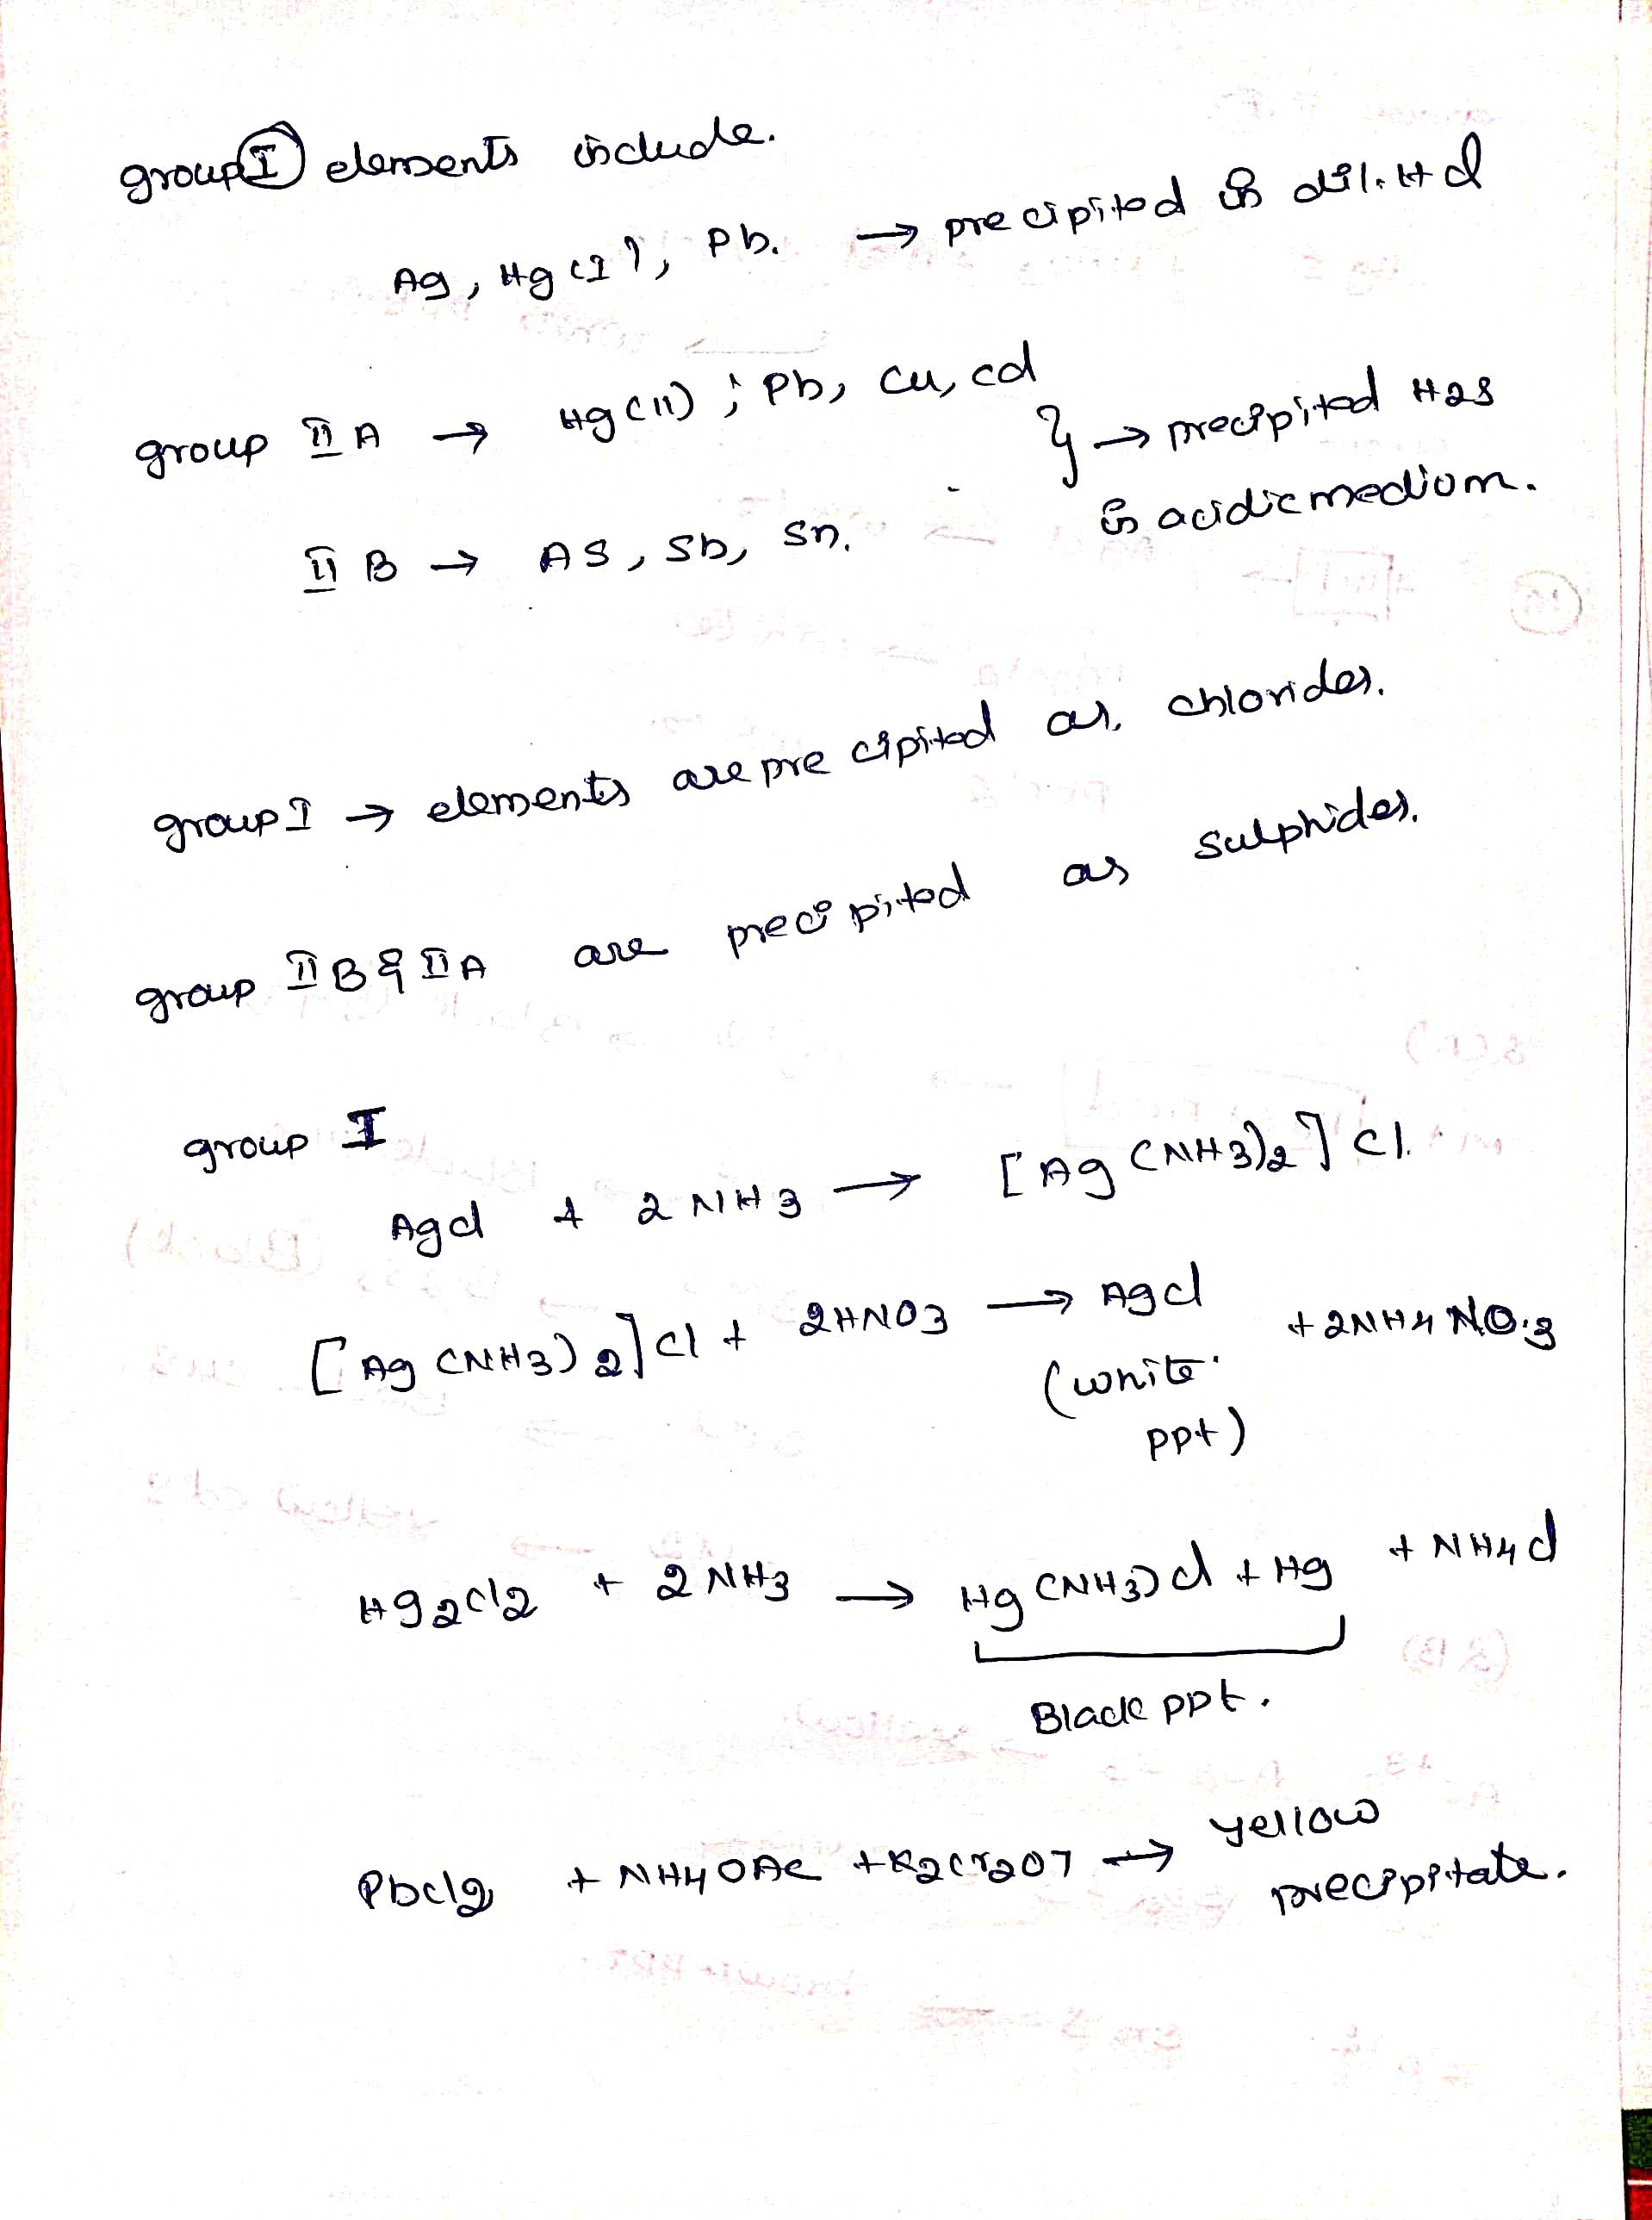 group I elements include.
Ag, Hg(I), Pb. → precipited in dil. HCl
group II A → Hg(II); Pb, Cu, cd
} → precipited H2S
in acidic medium.
II B → AS, Sb, Sn.
group I → elements are precipited as chlorides.
group II B & II A are precipited as sulphides.
group I
AgCl + 2NH3 → [Ag(NH3)2]Cl.
[Ag(NH3)2]Cl + 2HNO3 → AgCl + 2NH4NO3
(white
ppt)
Hg2Cl2 + 2NH3 → Hg(NH3)Cl + Hg + NH4Cl
Black ppt.
PbCl2 + NH4OAc + K2Cr2O7 → yellow
precipitate.